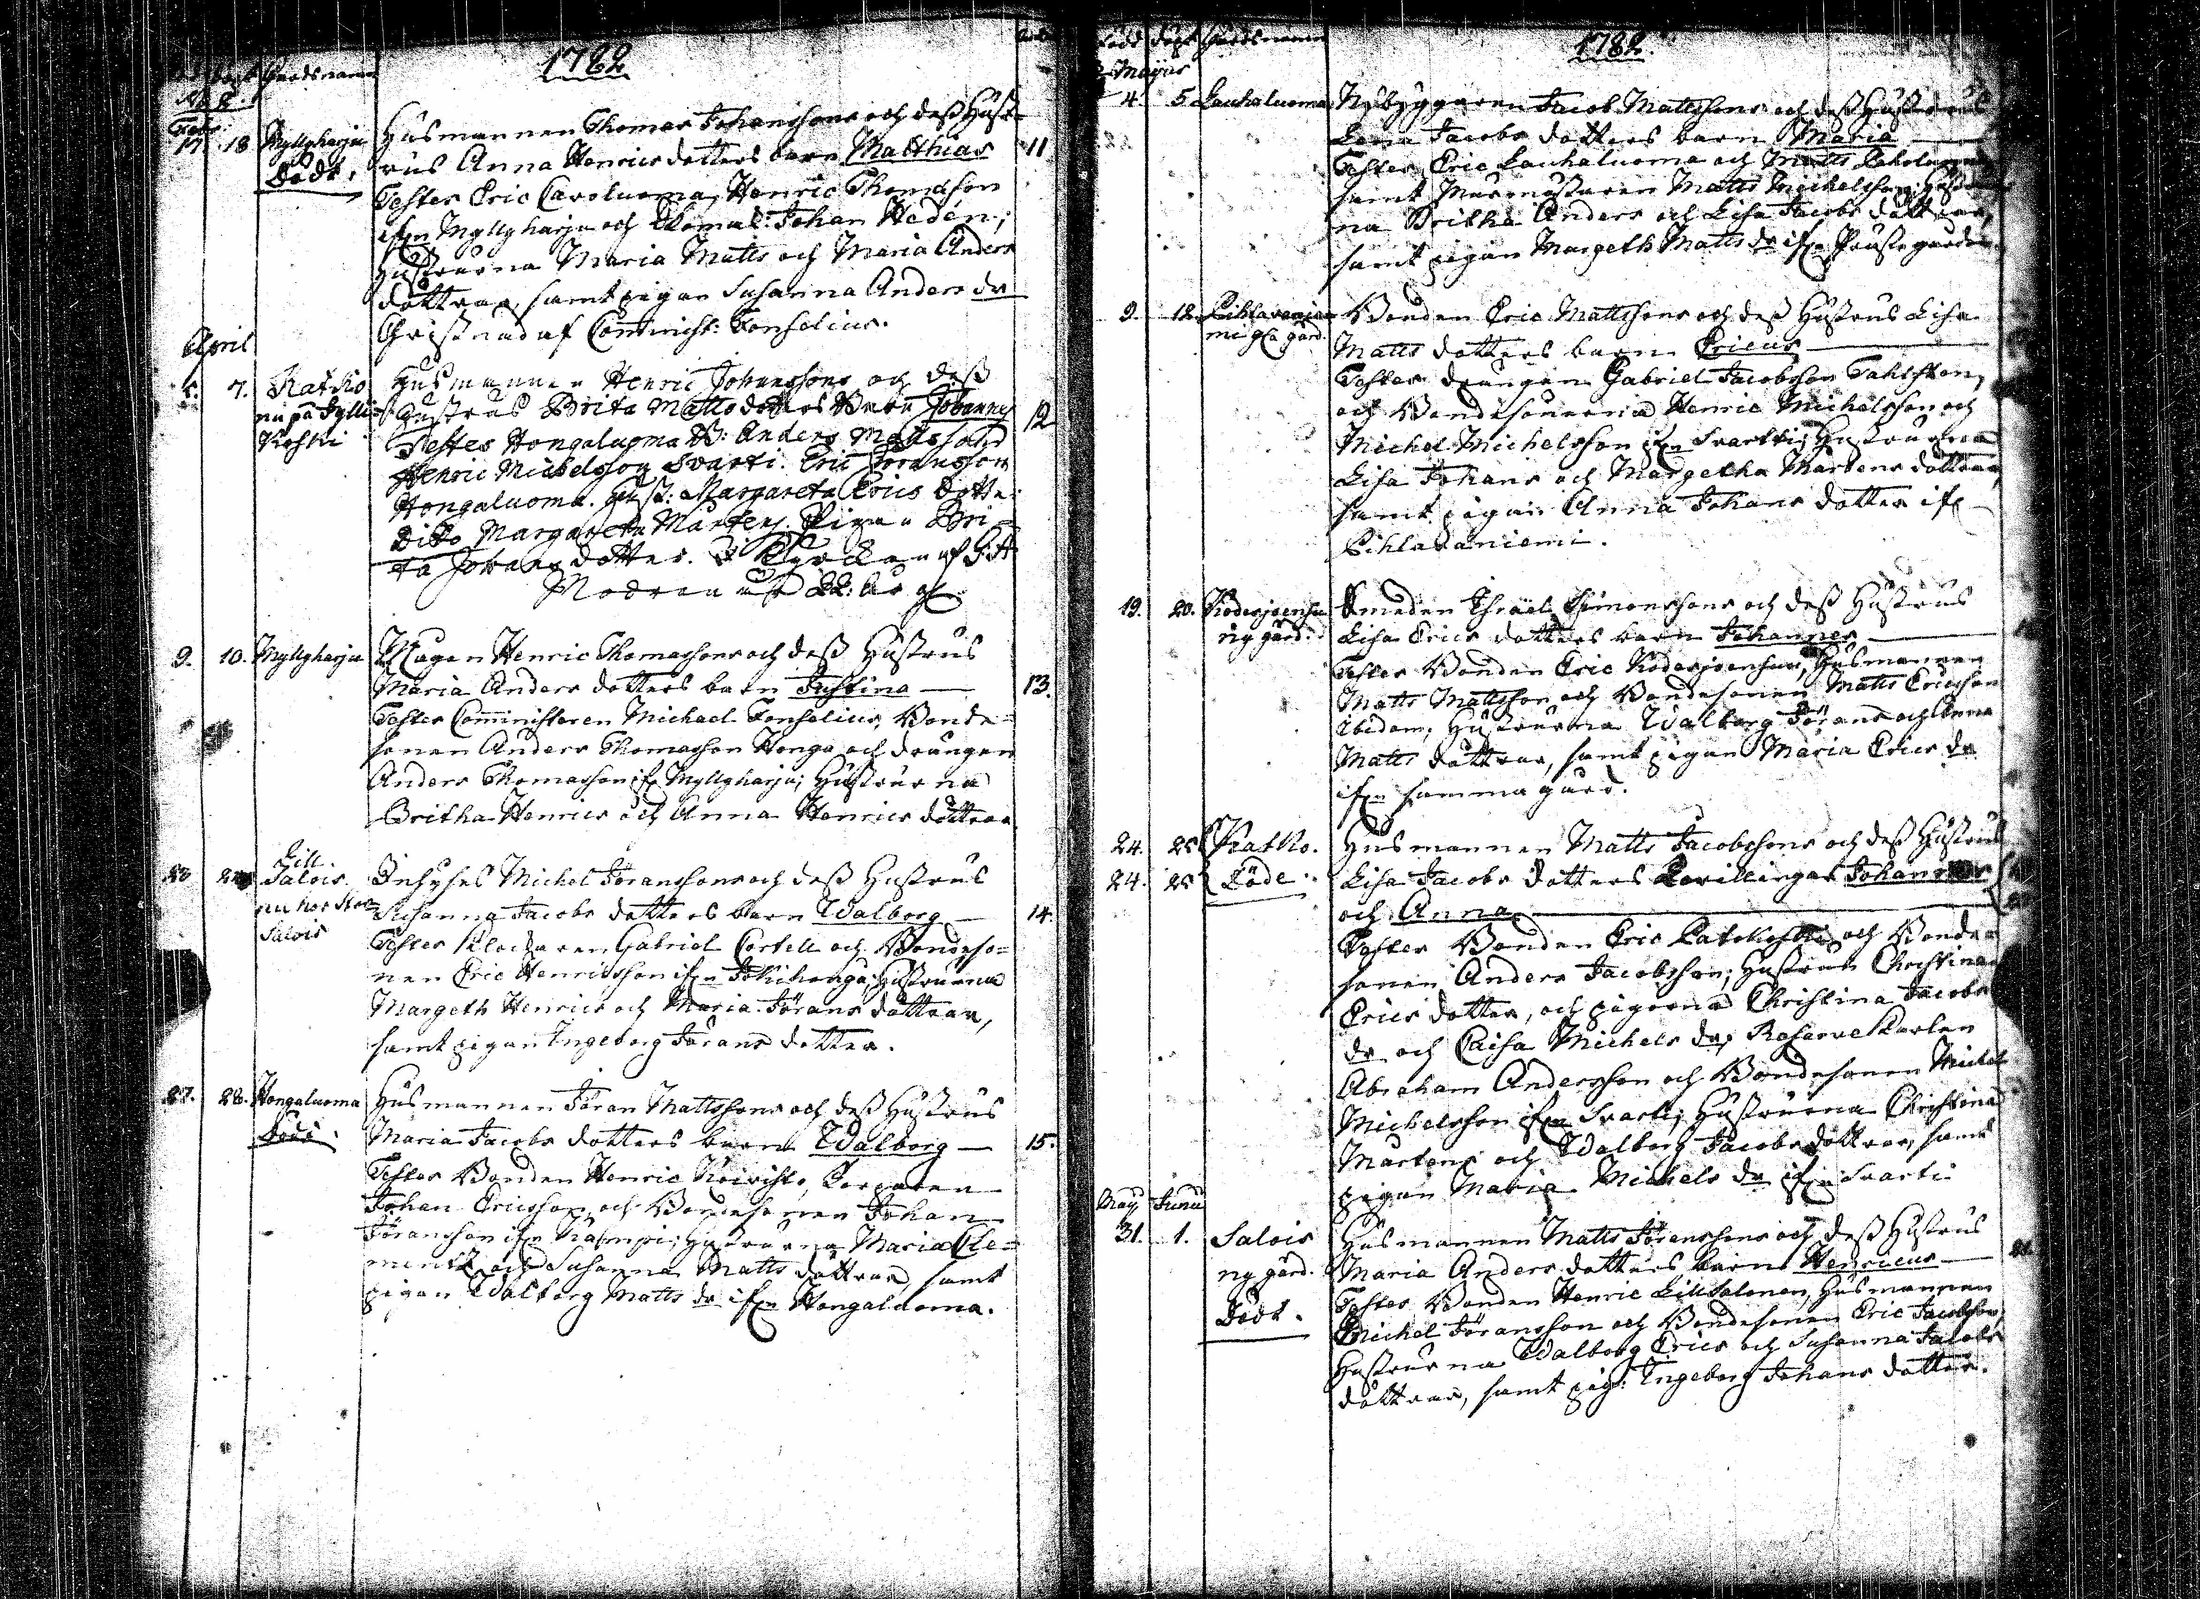 1782
döpt Gårdsnamn
Febr:
17. 18 Myllyharju Husmannen Thomas Johanssons och dess Hust-
Södt. rus Anna Henrics dotters barn Matthias 11
Testes Eric Caroluoma, Henric Thomasson
ifrn Myllyharju och Johan Hedén;
Hustrurna Maria Matts och Maria Anders
döttrar, samt pigan Susanna Anders dr
Christnad af Comminist: Fonselius.
April
5. 7. Katko Husmannen Henric Johanssons och dess
nu på Jylli Hustrus Brita Matts dotters Barn Johannes 12
Koski Testes Hongaluoma B: Anders Mattsson
Henric Michelsson Svarti. Eric Jöransson
Hongaluoma. Hust: Margareta Erics Dotter
Dito Margareta Martens. Pigan Bri-
ta Johans dotter. Kyrckan af
Modren
9. 10. Myllyharju Mågen Henric Thomassons och dess Hustrus
Maria Anders dotters barn Justina 13.
Testes Comministeren Michael Fonselius, Bonde-
sonen Anders Thomasson Honga och drängen
Anders Thomasson ifr Myllyharju; Hustrurna
Britha Henrics och Anna Henrics döttrar
Lill
Salois Inhyses Michel Jöranssons och dess Hustrus
nu hos Stor Susanna Jacobs dotters barn Walborg 14.
Salois Testes Klockaren Gabriel Cortell och Bondeso-
nen Eric Henricsson ifrn Jokihonga; Hustrurna
Margeth Henrics och Maria Jörans döttrar,
samt pigan Ingeborg Jörans dotter.
27. 28. Hongaluoma Husmannen Jöran Mattssons och dess Hustrus
Maria Jacobs dotters barn Walborg 15.
Testes Bonden Henric Koivisto,
Johan Ericsson och Bondesonen Johan
Jöransson ifrn Hustrurna Maria Cle-
ments och Susanna Matts döttrar, samt
pigan Walborg Matts dr ifrn Hongaluoma.
1782
född döpt Gårdsnamn
Majus
4. 5 Lauhaluoma Nybyggaren Jacob Mattssons och dess Hustrus
Lena Jacobs dotters barn Maria
Testes Eric Lauhaluoma och Matts
samt Murmästaren Matts Michelsson; Hustrur-
na Britha Anders och Lisa Jacobs döttrar,
samt pigan Margeth Matts dr ifrn Prästegården
9. 12. Pihlavanie- Bonden Eric Mattssons och dess Hustrus Lisa
mi gla gård. Matts dotters barn Ericus
Testes drängen Gabriel Jacobsson
och Bondesönerna Henric Michelsson och
Michel Michelsson ifrn Svartti; Hustrurna
Lisa Johans och Margetha Martens döttrar,
samt pigan Anna Johans dotter ifr
Pihlavaniemi.
19. 20. Koskesjoensuu Smeden Israel Simonssons och dess Hustrus
ny gård: Lisa Erics dotters barn Johannes
Testes Bonden Eric Husmannen
Matts Mattsson och Bondesonen Matts Ericsson
ibidem; Hustrurna Walborg Jörans och Anna
Matts döttrar, samt pigan Maria Erics dr
ifrn samma gård.
24. 25 Katko. Husmannen Matts Jacobssons och dess Hustrus
24. 25 Döde. Lisa Jacobs dotters Tvillingar Johannes
och Anna
Testes Bonden Eric Latokoski och Bonde-
sonen Anders Jacobsson; Hustrun Christina
Erics dotter, och pigorna Christina Jacobs
dr och Caisa Michels dr; Reservekarlen
Abraham Andersson och Bondesonen Michel
Michelsson ifrn Svarti; Hustrurna Christina
Martens och Walborg Jacobs döttrar, samt
pigan Maria Michels dr ifrn Svarti
Maj Junii
31. 1. Salois Husmannen Matts Jöranssons och dess Hustrus
ny gård. Maria Anders dotters barn Henricus
Testes Bonden Henric Lillsalonen, Husmannen
Södt. Michel Jöransson och Bondesonen Eric Jacobsson;
Hustrurna Walborg Erics och Susanna Jacobs
döttrar, samt pig: Ingeborg Johans dotter.